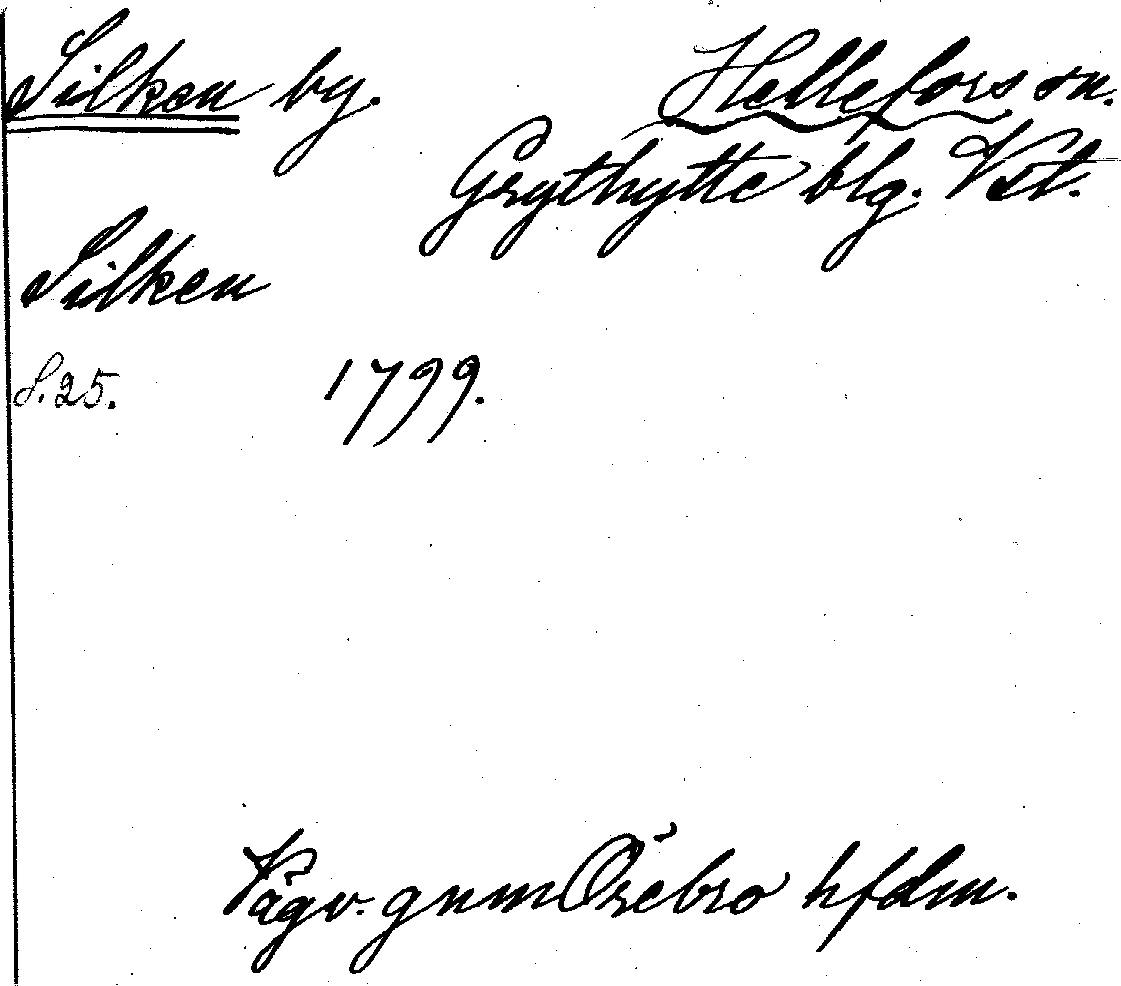 Silken by. Hellefors sn.
Grythytte blg. Vstl.
Silken
S. 25. 1799.
Vägv. gnm Örebro hfdm.